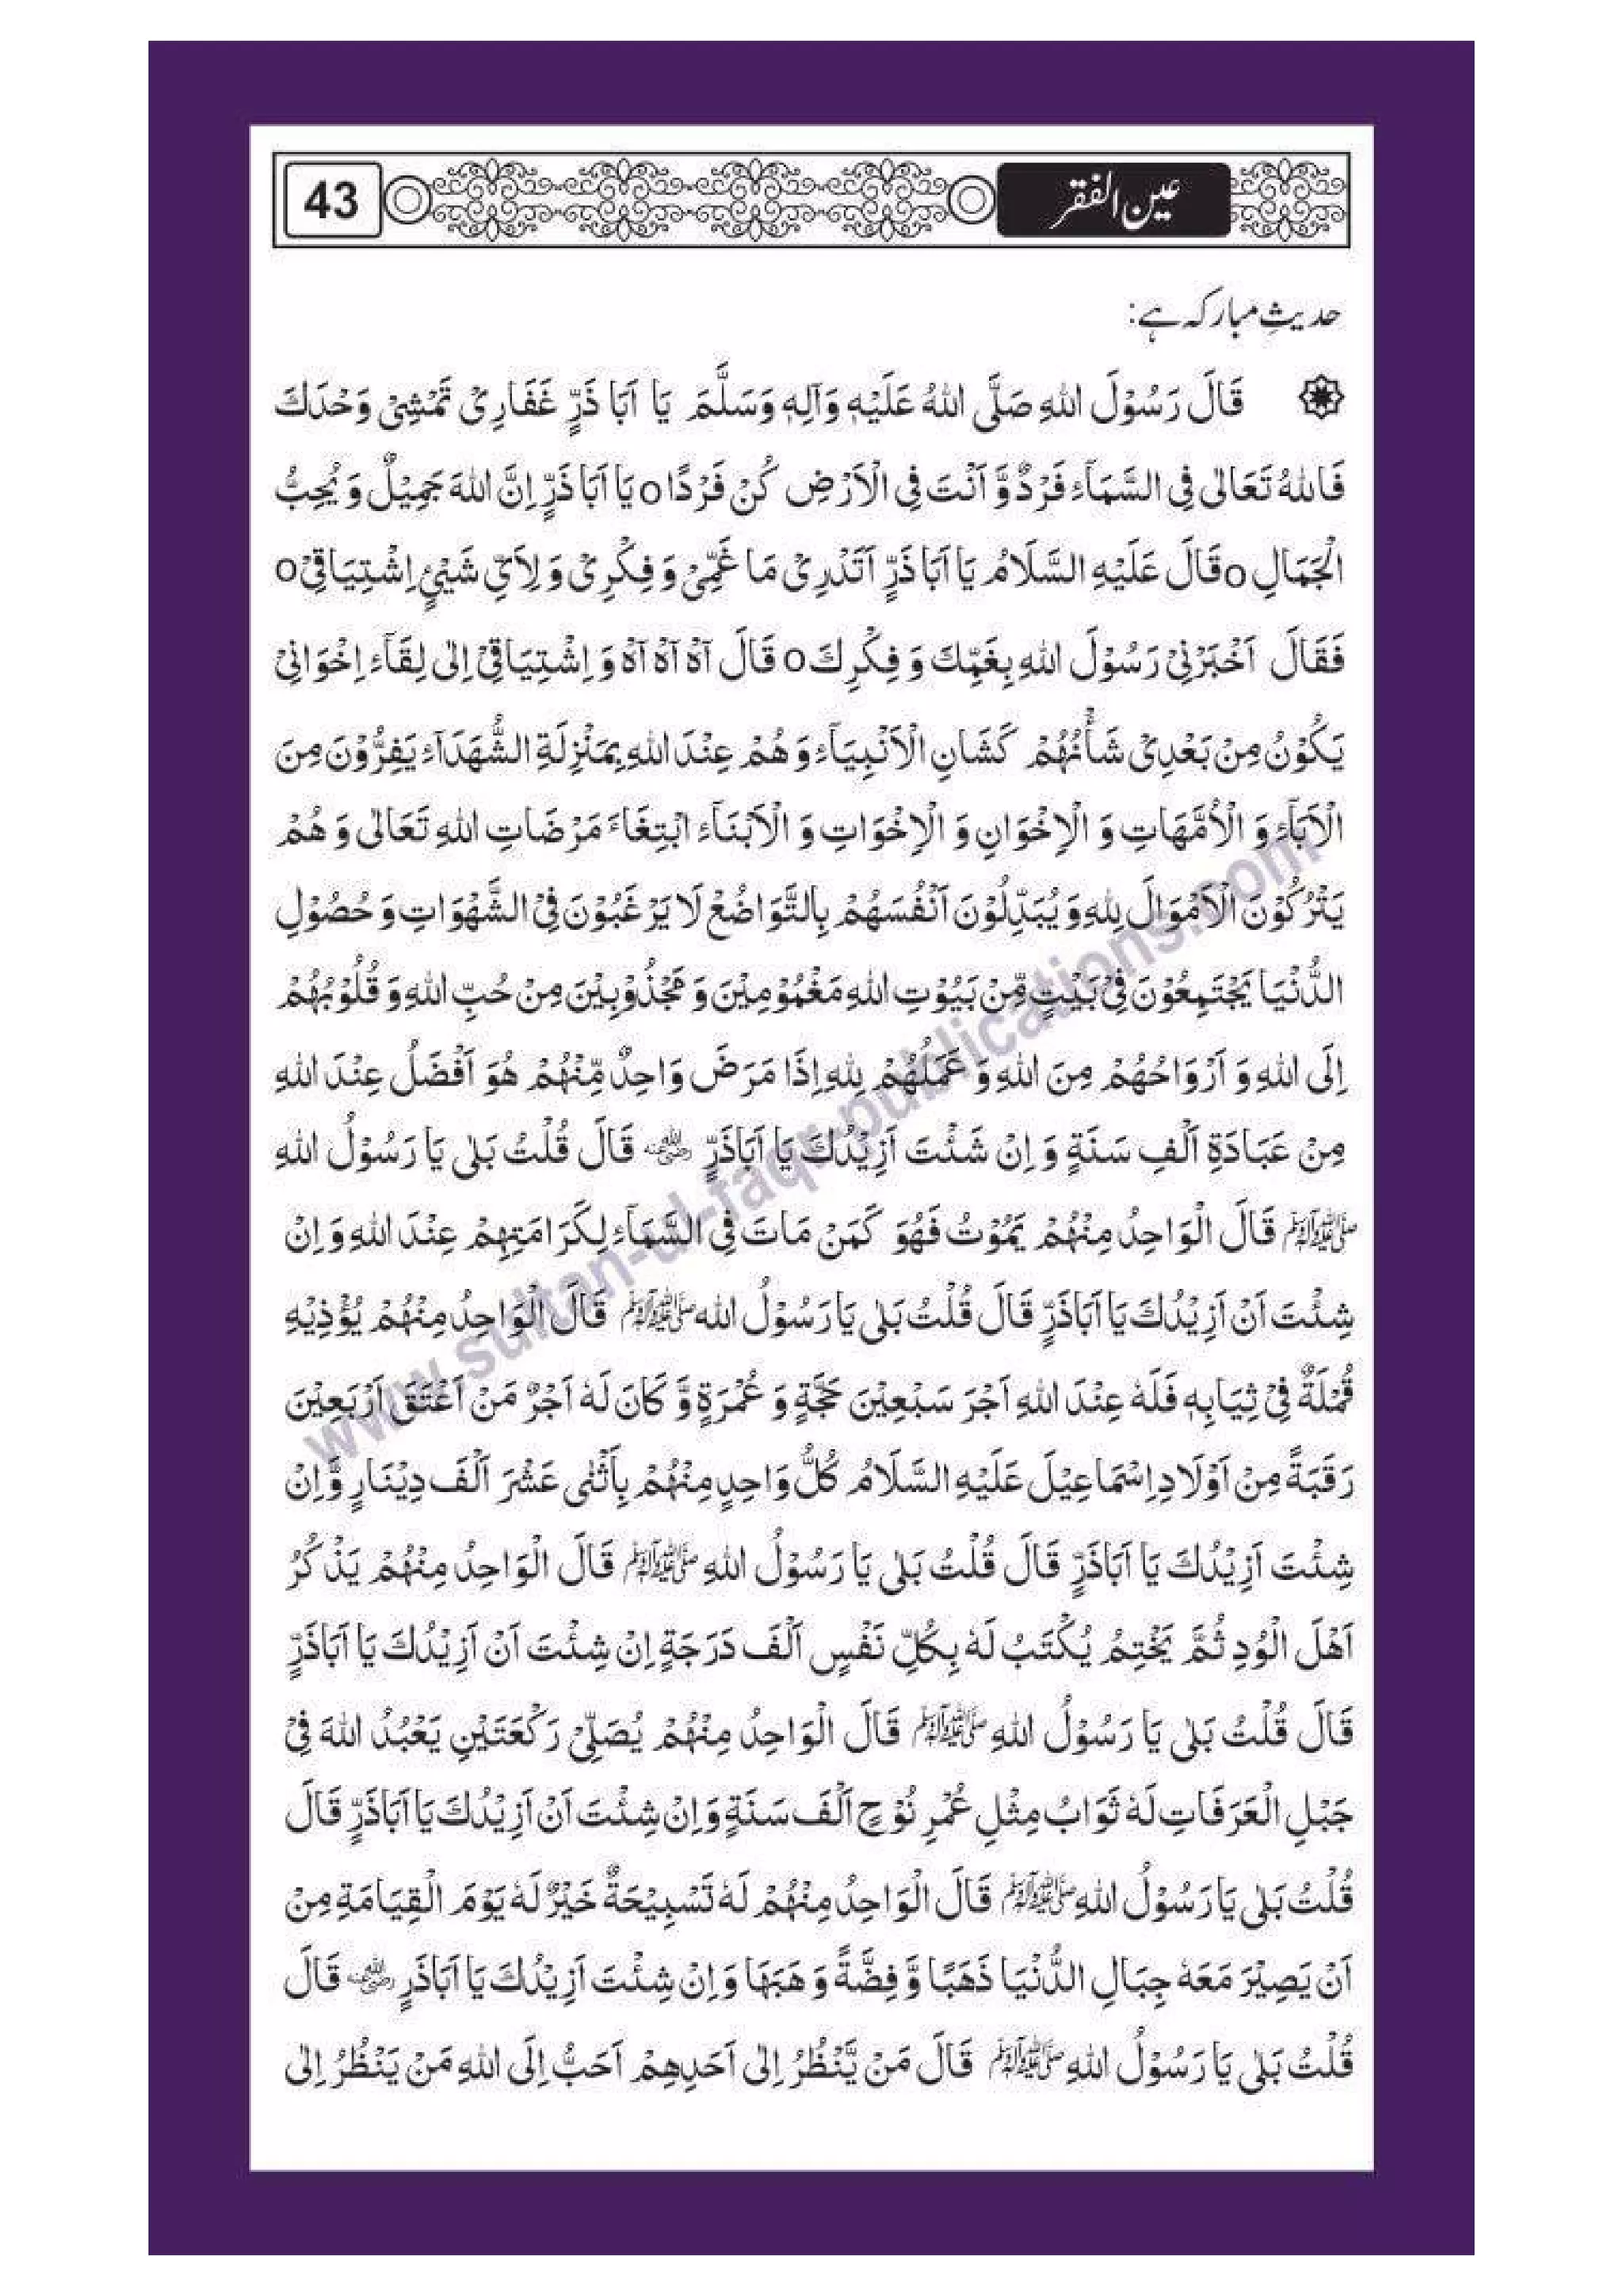 43
عین الفقر
حدیثِ مبارکہ ہے:
قَالَ رَسُوْلَ اللهِ صَلَّى اللهُ عَلَيْهِ وَآلِهٖ وَسَلَّمَ يَا اَبَا ذَرٍّ غَفَارِىْ تَمْشِىْ وَحْدَكَ
فَاللهُ تَعَالٰى فِى السَّمَآءِ فَرْدٌ وَّ اَنْتَ فِى الْاَرْضِ كُنْ فَرْدًا o يَا اَبَا ذَرٍّ اِنَّ اللهَ جَمِيْلٌ وَ يُحِبُّ
الْجَمَالِ o قَالَ عَلَيْهِ السَّلَامُ يَا اَبَا ذَرٍّ اَتَدْرِىْ مَا غَمِّىْ وَ فِكْرِىْ وَ لِاَيِّ شَيْئٍ اِشْتِيَاقِىْ o
فَقَالَ اَخْبَرْنِىْ رَسُوْلَ اللهِ بِغَمِّكَ وَ فِكْرِكَ o قَالَ آهْ آهْ آهْ وَ اِشْتِيَاقِىْ اِلٰى لِقَآءِ اِخْوَانِىْ
يَكُوْنُ مِنْ بَعْدِىْ شَأْنُهُمْ كَشَانِ الْاَنْبِيَآءِ وَ هُمْ عِنْدَ اللهِ بِمَنْزِلَةِ الشُّهَدَآءِ يَفِرُّوْنَ مِنَ
الْاَبَآءِ وَ الْاُمَّهَاتِ وَ الْاِخْوَانِ وَ الْاِخْوَاتِ وَ الْاَبْنَآءِ ابْتِغَاءَ مَرْضَاتِ اللهِ تَعَالٰى وَ هُمْ
يَتْرُكُوْنَ الْاَمْوَالَ لِلهِ وَ يُبَدِّلُوْنَ اَنْفُسَهُمْ بِالتَّوَاضُعْ لَا يَرْغَبُوْنَ فِىْ الشَّهْوَاتِ وَ حُصُوْلِ
الدُّنْيَا يَجْتَمِعُوْنَ فِىْ بَيْتٍ مِّنْ بَيُوْتِ اللهِ مَغْمُوْمِيْنَ وَ مَجْذُوْبِيْنَ مِنْ حُبِّ اللهِ وَ قُلُوْبُهُمْ
اِلَى اللهِ وَ اَرْوَاحُهُمْ مِنَ اللهِ وَ عَمَلُهُمْ لِلهِ اِذَا مَرَضَ وَاحِدٌ مِّنْهُمْ هُوَ اَفْضَلُ عِنْدَ اللهِ
مِنْ عَبَادَةِ اَلْفِ سَنَةٍ وَ اِنْ شَئْتَ اَزِيْدُكَ يَا اَبَاذَرٍّ رضی اللہ عنہ قَالَ قُلْتُ بَلٰى يَا رَسُوْلُ اللهِ
ﷺ قَالَ الْوَاحِدُ مِنْهُمْ يَمُوْتُ فَهُوَ كَمَنْ مَاتَ فِى السَّمَآءِ لِكَرَامَتِهِمْ عِنْدَ اللهِ وَ اِنْ
شِئْتَ اَنْ اَزِيْدُكَ يَا اَبَاذَرٍّ قَالَ قُلْتُ بَلٰى يَا رَسُوْلُ الله ﷺ قَالَ الْوَاحِدُ مِنْهُمْ يُؤْذِيْهِ
قُمْلَةٌ فِىْ ثِيَابِهٖ فَلَهٗ عِنْدَ اللهِ اَجْرَ سَبْعِيْنَ حَجَّةٍ وَ عُمْرَةٍ وَّ كَانَ لَهٗ اَجْرٌ مَنْ اَعْتَقَ اَرْبَعِيْنَ
رَقَبَةً مِنْ اَوْلَادِ اِسْمَاعِيْلَ عَلَيْهِ السَّلَامُ كُلُّ وَاحِدٍ مِنْهُمْ بِأَثْنٰى عَشْرَ اَلْفَ دِيْنَارٍ وَّ اِنْ
شِئْتَ اَزِيْدُكَ يَا اَبَاذَرٍّ قَالَ قُلْتُ بَلٰى يَا رَسُوْلُ اللهِ ﷺ قَالَ الْوَاحِدُ مِنْهُمْ يَذْكُرُ
اَهْلَ الْوُدِ ثُمَّ يَخْتِمُ يُكْتَبُ لَهٗ بِكُلِّ نَفْسٍ اَلْفَ دَرَجَةٍ اِنْ شِئْتَ اَنْ اَزِيْدُكَ يَا اَبَاذَرٍّ
قَالَ قُلْتُ بَلٰى يَا رَسُوْلُ اللهِ ﷺ قَالَ الْوَاحِدُ مِنْهُمْ يُصَلِّىْ رَكْعَتَيْنِ يَعْبُدُ اللهَ فِىْ
جَبْلِ الْعَرَفَاتِ لَهٗ ثَوَابُ مِثْلِ عُمْرِ نُوْحٍ اَلْفَ سَنَةٍ وَ اِنْ شِئْتَ اَنْ اَزِيْدُكَ يَا اَبَاذَرٍّ قَالَ
قُلْتُ بَلٰى يَا رَسُوْلُ اللهِ ﷺ قَالَ الْوَاحِدُ مِنْهُمْ لَهٗ تَسْبِيْحَةٌ خَيْرٌ لَهٗ يَوْمَ الْقِيَامَةِ مِنْ
اَنْ يَصِيْرَ مَعَهٗ جِبَالِ الدُّنْيَا ذَهَبًا وَّ فِضَّةً وَ هَبَهَا وَ اِنْ شِئْتَ اَزِيْدُكَ يَا اَبَاذَرٍ رضی اللہ عنہ قَالَ
قُلْتُ بَلٰى يَا رَسُوْلُ اللهِ ﷺ قَالَ مَنْ يَّنْظُرُ اِلٰى اَحَدِهِمْ اَحَبُّ اِلَى اللهِ مَنْ يَنْظُرُ اِلٰى
www.sultan-ul-faqr-publications.com